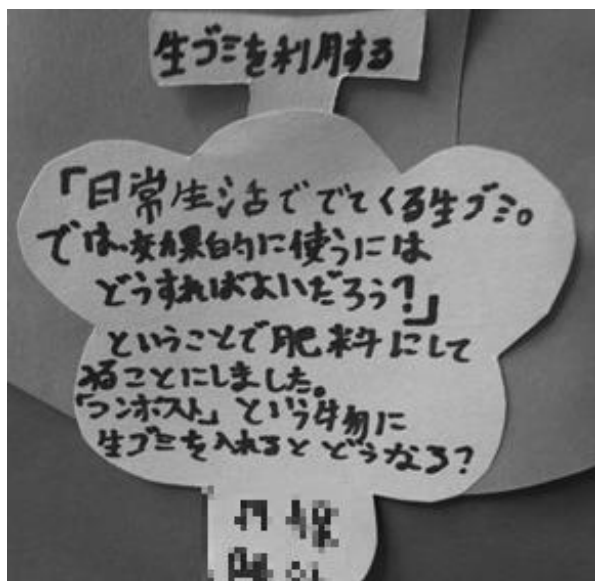 生ゴミを利用する
「日常生活ででてくる生ゴミ。
では、効果的に使うには
どうすればよいだろう?」
ということで肥料にして
みることにしました。
「コンポスト」という物に
生ゴミを入れるとどうなる?